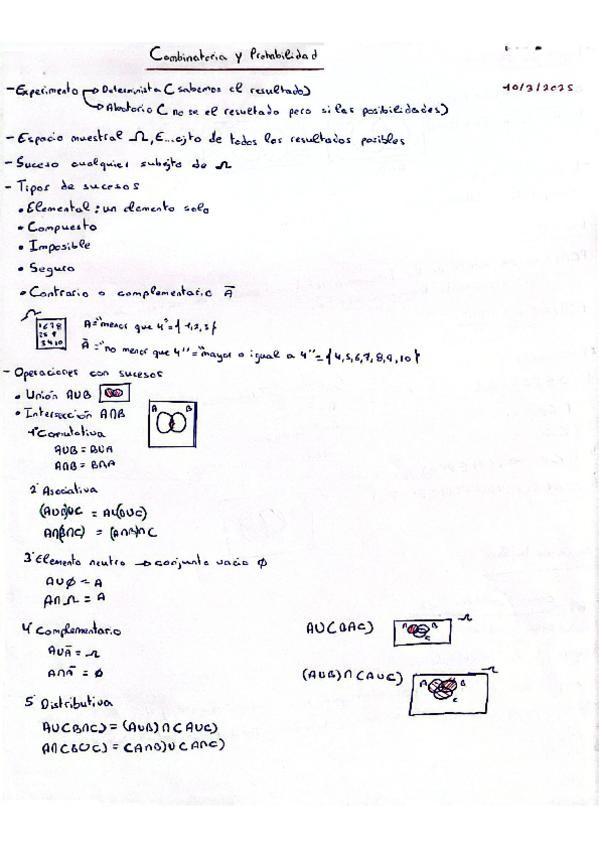 Combinatoria y Probabilidad
10/3/2025
- Experimento → Determinista ( sabemos el resultado)
→ Aleatorio ( no se el resultado pero si las posibilidades)
- Espacio muestral Ω, E...cjto de todos los resultados posibles
- Suceso cualquier subcjto de Ω
- Tipos de sucesos
• Elemental: un elemento solo
• Compuesto
• Imposible
• Seguro
• Contrario o complementario Ā
Ω
1 6 7 8
2 5 9
3 4 10
A="menor que 4"={1,2,3}
Ā="no menor que 4"="mayor o igual a 4"={4,5,6,7,8,9,10}
- Operaciones con sucesos
• Unión A∪B
• Intersección A∩B
A B
1º Conmutativa
A∪B = B∪A
A∩B = B∩A
2º Asociativa
(A∪B)∪C = A∪(B∪C)
A∩(B∩C) = (A∩B)∩C
3º Elemento neutro → conjunto vacio Ø
A∪Ø = A
A∩Ω = A
4º Complementario
A∪Ā = Ω
A∩Ā = Ø
A∪(B∩C)
A B C Ω
(A∪B)∩(A∪C)
A B C Ω
5º Distributiva
A∪(B∩C) = (A∪B)∩(A∪C)
A∩(B∪C) = (A∩B)∪(A∩C)